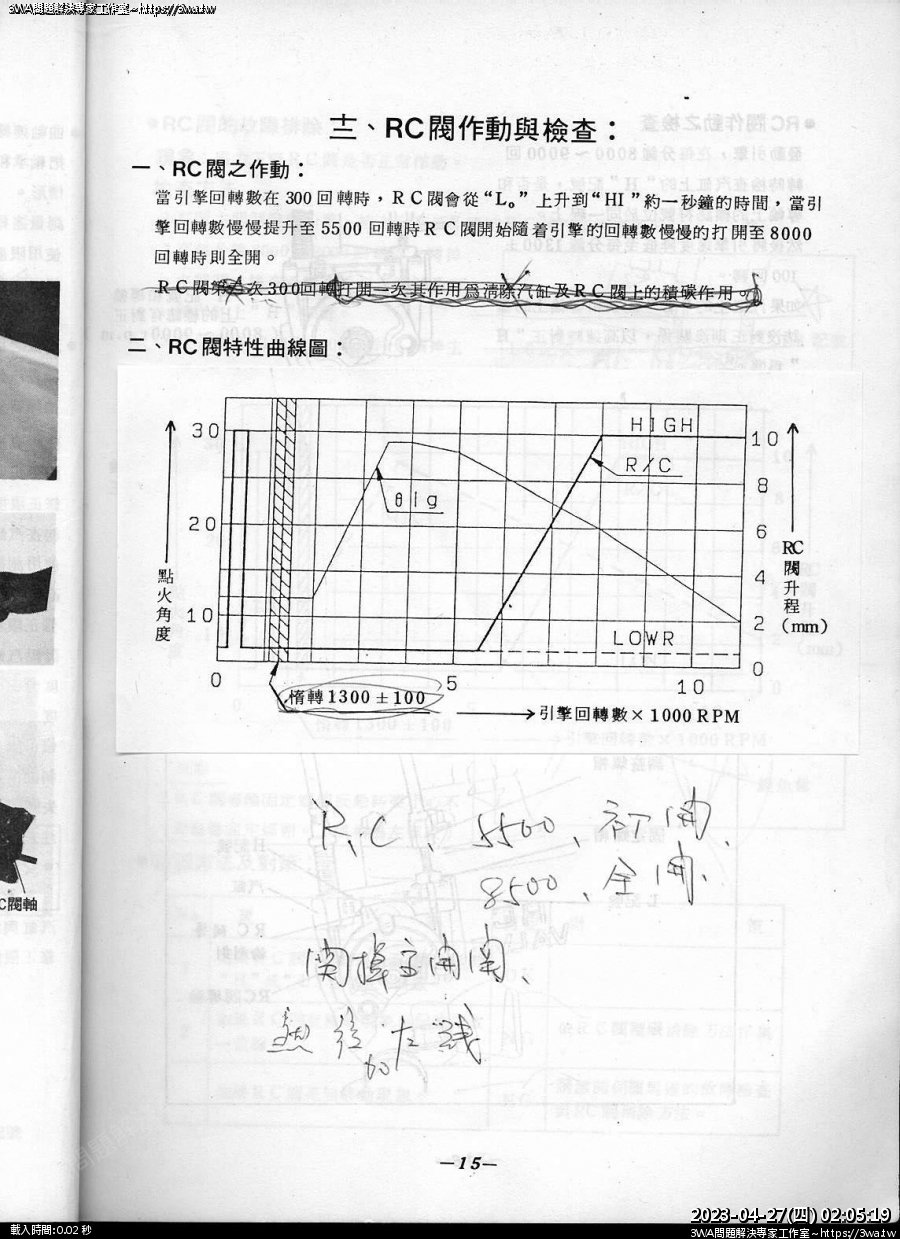 3WA問題解決專家工作室~https://3wa.tw
十二、RC閥作動與檢查：
一、RC閥之作動：
當引擎回轉數在 300 回轉時，RC閥會從“L。”上升到“HI”約一秒鐘的時間，當引
擎回轉數慢慢提升至 5500 回轉時RC閥開始隨着引擎的回轉數慢慢的打開至8000
回轉時則全開。
RC閥第二次300回轉打開一次其作用爲清除汽缸及RC閥上的積碳作用。
二、RC閥特性曲線圖：
HIGH
30
10
R/C
8
θig
20
6
RC閥升程(mm)
點火角度
4
10
2
LOWR
0
0
5
10
惰轉1300±100
引擎回轉數×1000RPM
R.C、5500、訂開、
8500、全開、
C閥軸
—15—
2023-04-27(四) 02:05:19
載入時間:0.02 秒
3WA問題解決專家工作室~https://3wa.tw